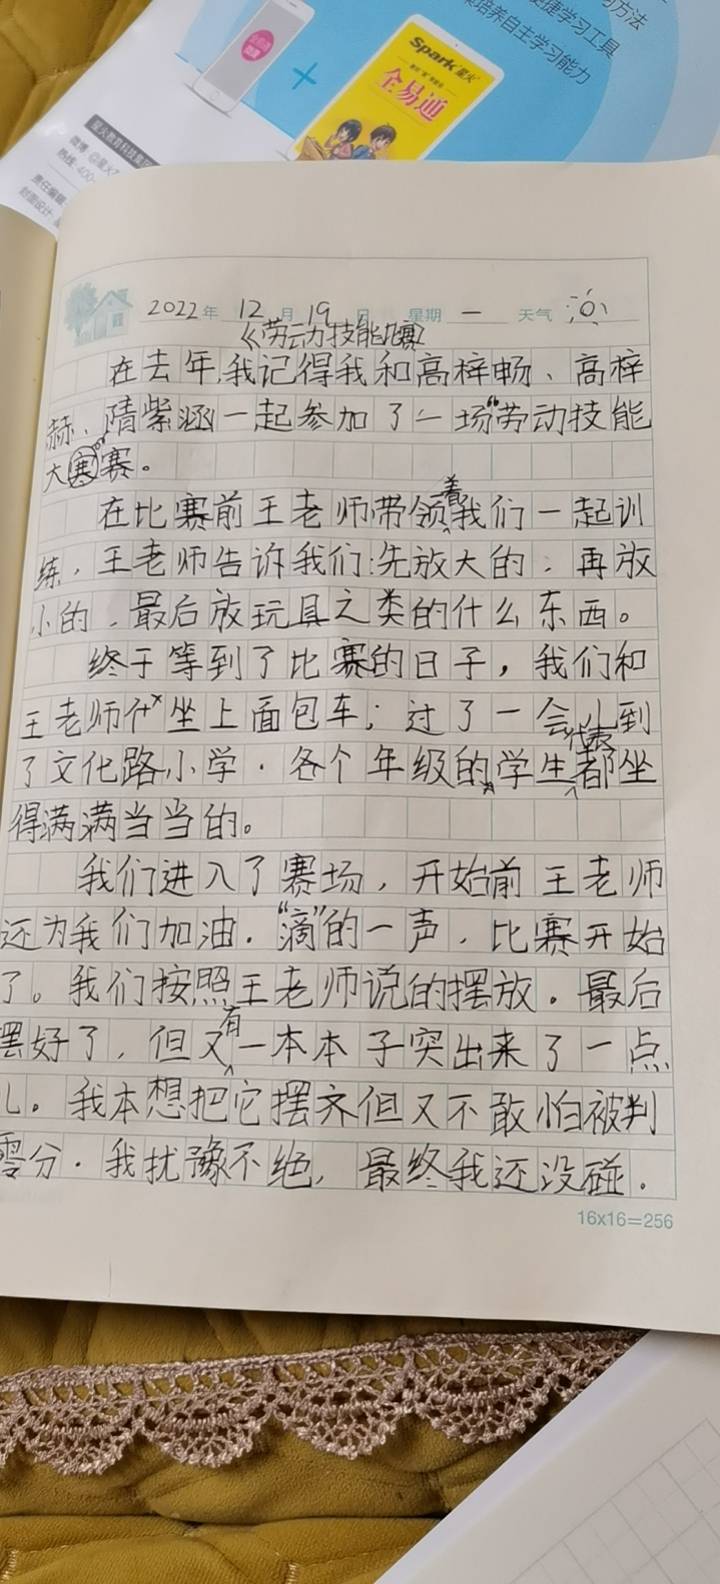 习方法
便捷学习工具
培养自主学习能力
Spark 星火
全易通
+
星火教育科技集团
微博 @星火
热线:400-
责任编辑
封面设计:
2022年 12月 19日 星期 一 天气
《劳动技能比赛》
在去年,我记得我和高梓畅、高梓
赫、隋紫涵一起参加了一场“劳动技能
大赛。
在比赛前王老师带领着我们一起训
练,王老师告诉我们:先放大的,再放
小的,最后放玩具之类的什么东西。
终于等到了比赛的日子,我们和
王老师坐上面包车;过了一会儿到
了文化路小学.各个年级的学生代表都坐
得满满当当的。
我们进入了赛场,开始前王老师
还为我们加油.“滴”的一声,比赛开始
了。我们按照王老师说的摆放。最后
摆好了,但又有一本本子突出来了一点
儿。我本想把它摆齐但又不敢怕被判
零分.我扰豫不绝,最终我还没碰.
16x16=256